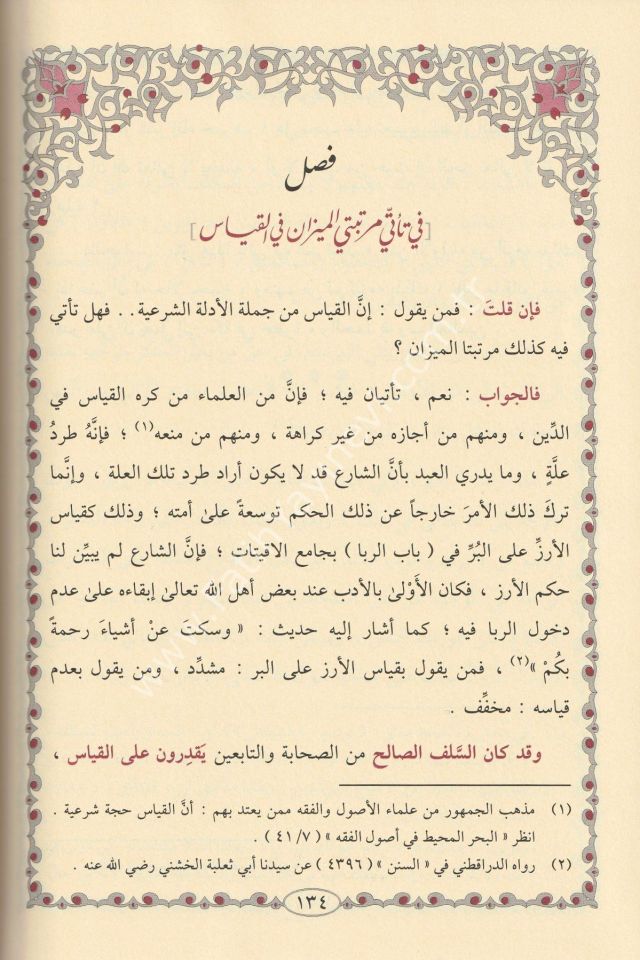 فصل
[في تأتّي مرتبتي الميزان في القياس]
فإن قلتَ : فمن يقول : إنَّ القياس من جملة الأدلة الشرعية . . فهل تأتي
فيه كذلك مرتبتا الميزان ؟
فالجواب : نعم ، تأتيان فيه ؛ فإنَّ من العلماء من كره القياس في
الدِّين ، ومنهم من أجازه من غير كراهة ، ومنهم من منعه(١) ؛ فإنَّهُ طردُ
علَّةٍ ، وما يدري العبد بأنَّ الشارع قد لا يكون أراد طرد تلك العلة ، وإنَّما
تركَ ذلك الأمرَ خارجاً عن ذلك الحكم توسعةً علىٰ أمته ؛ وذلك كقياس
الأرزِّ على البُرِّ في ( باب الربا ) بجامع الاقتيات ؛ فإنَّ الشارع لم يبيِّن لنا
حكم الأرز ، فكان الأَوْلىٰ بالأدب عند بعض أهل الله تعالىٰ إبقاءه علىٰ عدم
دخول الربا فيه ؛ كما أشار إليه حديث : « وسكتَ عنْ أشياءَ رحمةً
بكُمْ »(٢) ، فمن يقول بقياس الأرز على البر : مشدِّد ، ومن يقول بعدم
قياسه : مخفِّف .
وقد كان السَّلف الصالح من الصحابة والتابعين يَقدِرون على القياس ،
(١) مذهب الجمهور من علماء الأصول والفقه ممن يعتد بهم : أنَّ القياس حجة شرعية .
انظر « البحر المحيط في أصول الفقه » ( ٤١/٧ ) .
(٢) رواه الدراقطني في « السنن » ( ٤٣٩٦ ) عن سيدنا أبي ثعلبة الخشني رضي الله عنه .
١٣٤